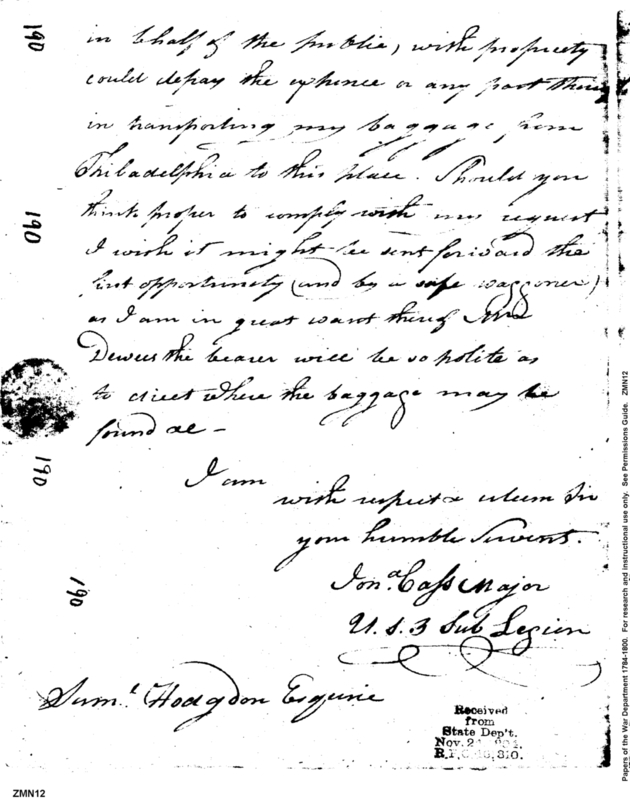 190
in behalf of the public, with propriety
could defray the expence or any part there
in transporting my baggage from
Philadelphia to this place. Should you
190
think proper to comply with my request
I wish it might be sent forward the
first opportunity (and by a safe waggoner)
as I am in great want thereof
Dewees the bearer will be so polite as
to direct where the baggage may be
found &c –
190
I am
with respect & esteem Sir
your humble Servent.
190
Jona. Cass Major
U. S. 3 Sub Legion
Saml. Hodgdon Esquire
Received
from
State Dep't.
Nov. 2
R.P.
310.
Papers of the War Department 1784-1800. For research and instructional use only. See Permissions Guide. ZMN12
ZMN12